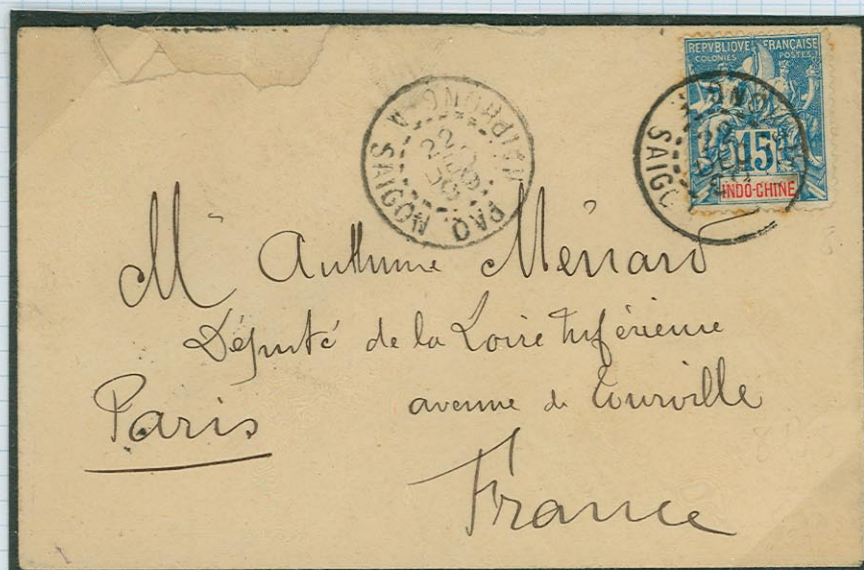 REPVBLIQVE FRANÇAISE
COLONIES POSTES
15
INDO-CHINE
SAIGON A HAIPHONG
PAQ.
22
SAIGO
22
M Anthime Ménard
Député de la Loire Inférieure
avenue de Tourville
Paris
France